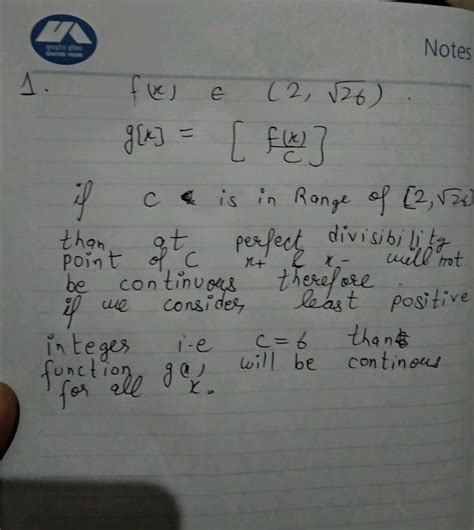 Notes
1. f(x) ∈ (2, √26).
g[x] = [f(x)/c]
if c is in Range of [2, √26]
than at perfect divisibility
point of C x+ & x- will not
be continuous therefore.
if we consider least positive
integer i.e c=6 than
function g(x) will be continous
for all x.